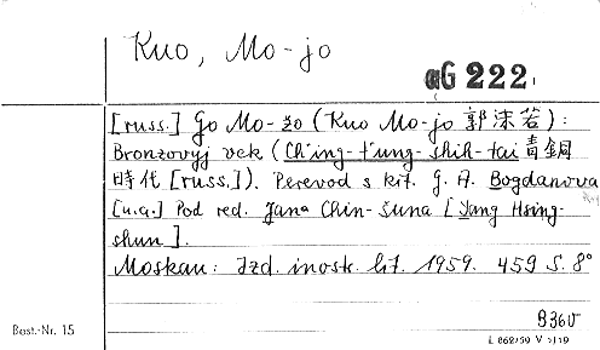 Kuo, Mo-jo
aG 222
[russ.] Go Mo-žo (Kuo Mo-jo 郭沫若):
Bronzovyj vek (Ch'ing-t'ung-shih-tai 青銅
時代 [russ.]). Perevod s kit. G. A. Bogdanova
[u.a.] Pod red. Jana Chin-šuna [Yang Hsing-
shun].
Moskau: Izd. inostr. lit. 1959. 459 S. 8°
Best.-Nr. 15
L 868/59 V